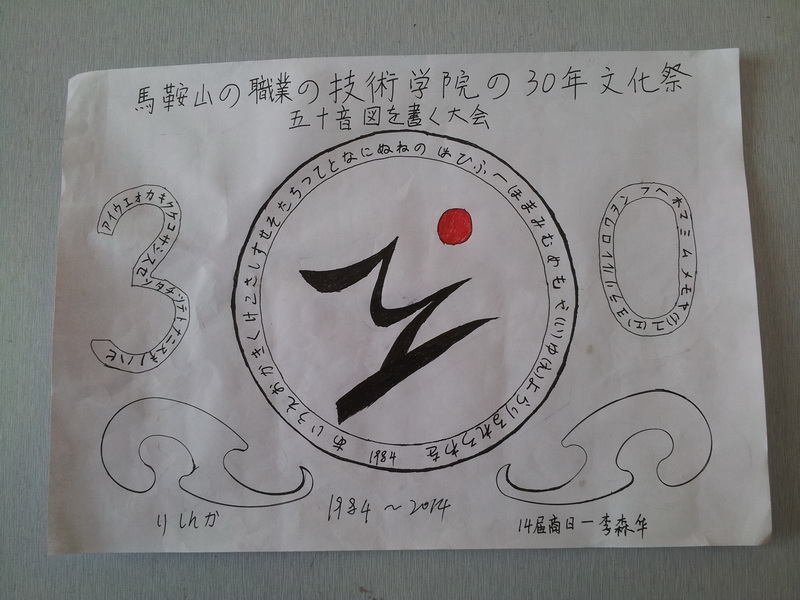 馬鞍山の職業の技術学院の30年文化祭
五十音図を書く大会
アイウエオカキクケコサシスセソタチツテトナニヌネノハヒ
あいうえおかきくけこさしすせそたちつてとなにぬねのはひふへほまみむめもや(い)ゆ(え)よらりるれろわを
1984
フヘホマミムメモヤ(イ)ユ(エ)ヨラリルレロワヲン
りしんか
1984～2014
14届商日一李森华